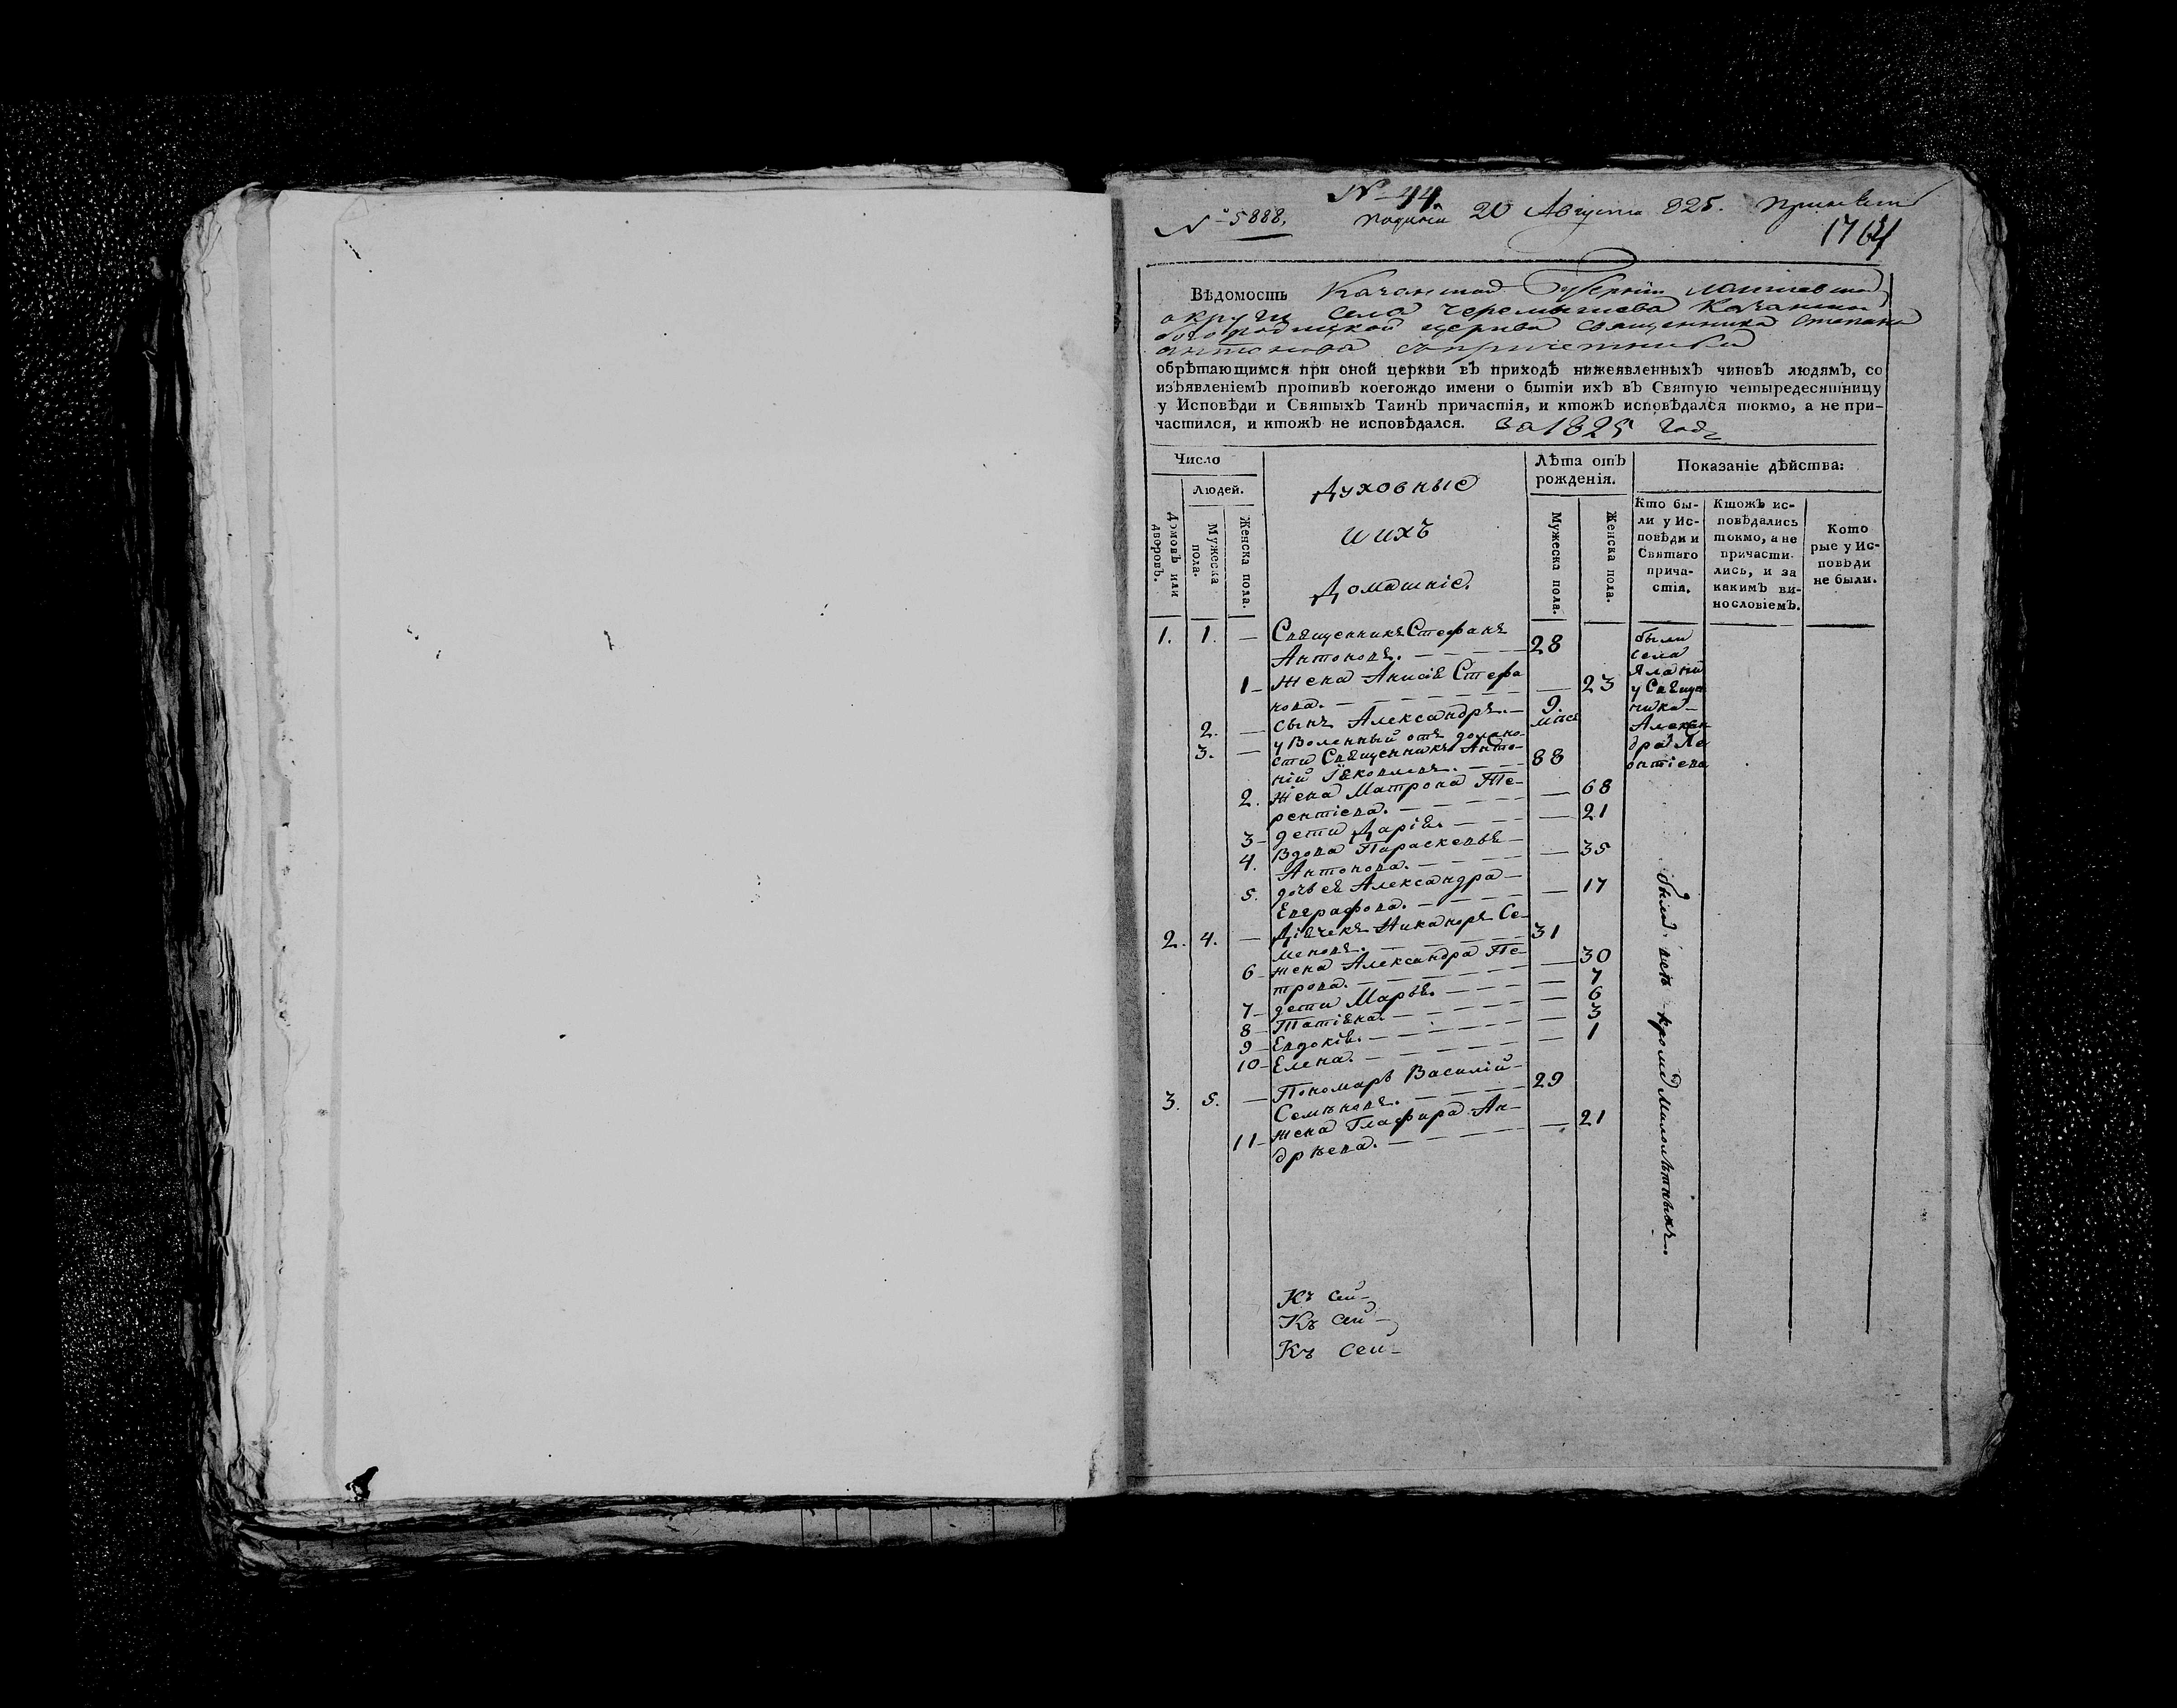 № 44
№ 5888. Подана 20 Августа 825.
1764
Вѣдомость Казанской Губерніи Лаишевской
округи села Черемышева Казанской
богородицкой церкви священника Степана
антонова съ причетники
обрѣтающимся при оной церкви въ приходѣ нижеявленныхъ чиновъ людямъ, со
изъявленіемъ противъ коегождо имени о бытіи ихъ въ Святую четыредесятницу
у Исповѣди и Святыхъ Таинъ причастія, и ктожъ исповѣдался токмо, а не при-
частился, и ктожъ не исповѣдался. за 1825 годъ
Число
Людей.
Домовъ или дворовъ.
Мужеска пола.
Женска пола.
Духовные
и ихъ
Домашніе.
Лѣта отъ
рожденія.
Мужеска пола.
Женска пола.
Показаніе дѣйства:
Кто бы-
ли у Ис-
повѣди и
Святаго
прича-
стія.
Ктожъ ис-
повѣдались
токмо, а не
причасти-
лись, и за
какимъ ви-
нословіемъ.
Кото
рые у Ис-
повѣди
не были.
1. 1. — Священникъ Стефанъ
Антоновъ. — 28
1 — Жена Анисія Стефа
нова. — 23
2. — сынъ Александръ. — 9. мѣс
3. — уволенный отъ должно-
сти Священникъ Анто-
ній Іяковлевъ. — 88
2. Жена Матрона Те-
рентіева. — 68
3 — дети Дарія. — 21
4. Вдова Параскевья —
Антонова. — 35
5. дочь ея Александра —
Евграфова. — 17
2. 4. — Діячекъ Никаноръ Се-
меновъ. — 31
6 — жена Александра Пе-
трова. — 30
7 — дети Марья. — 7
8 — Татіяна. — 6
9 — Евдокія. — 3
10 — Елена. — 1
3. 5. — Пономарь Василій —
Семѣновъ. — 29
11 — жена Глафира Ан-
дрѣева. — 21
были
села
у Свяще
ника —
Алексан
дра Ле
онтіева
были всѣ кромѣ малолѣтныхъ.
Къ сей —
Къ сей —
Къ сей —